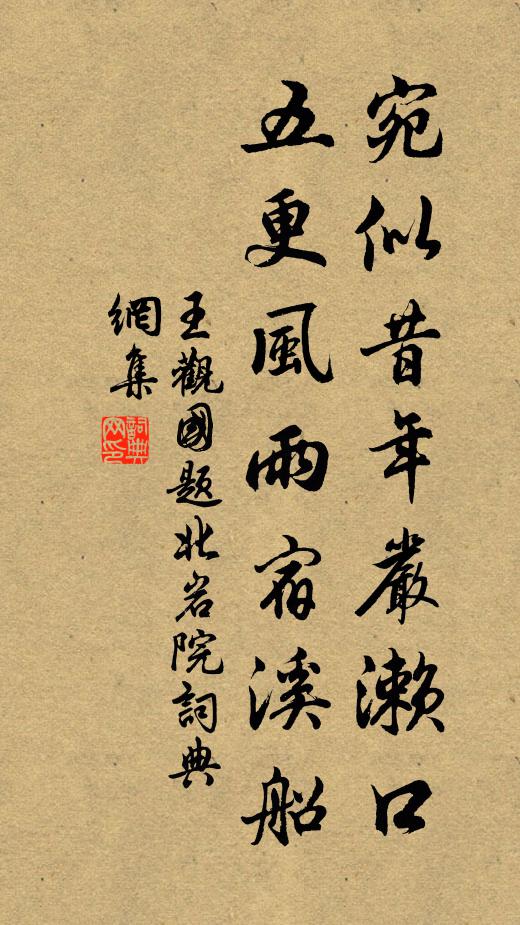 宛似昔年嚴瀨口
五更風雨宿溪船
王觀國題北岩院詞典
網集
詞典
网印